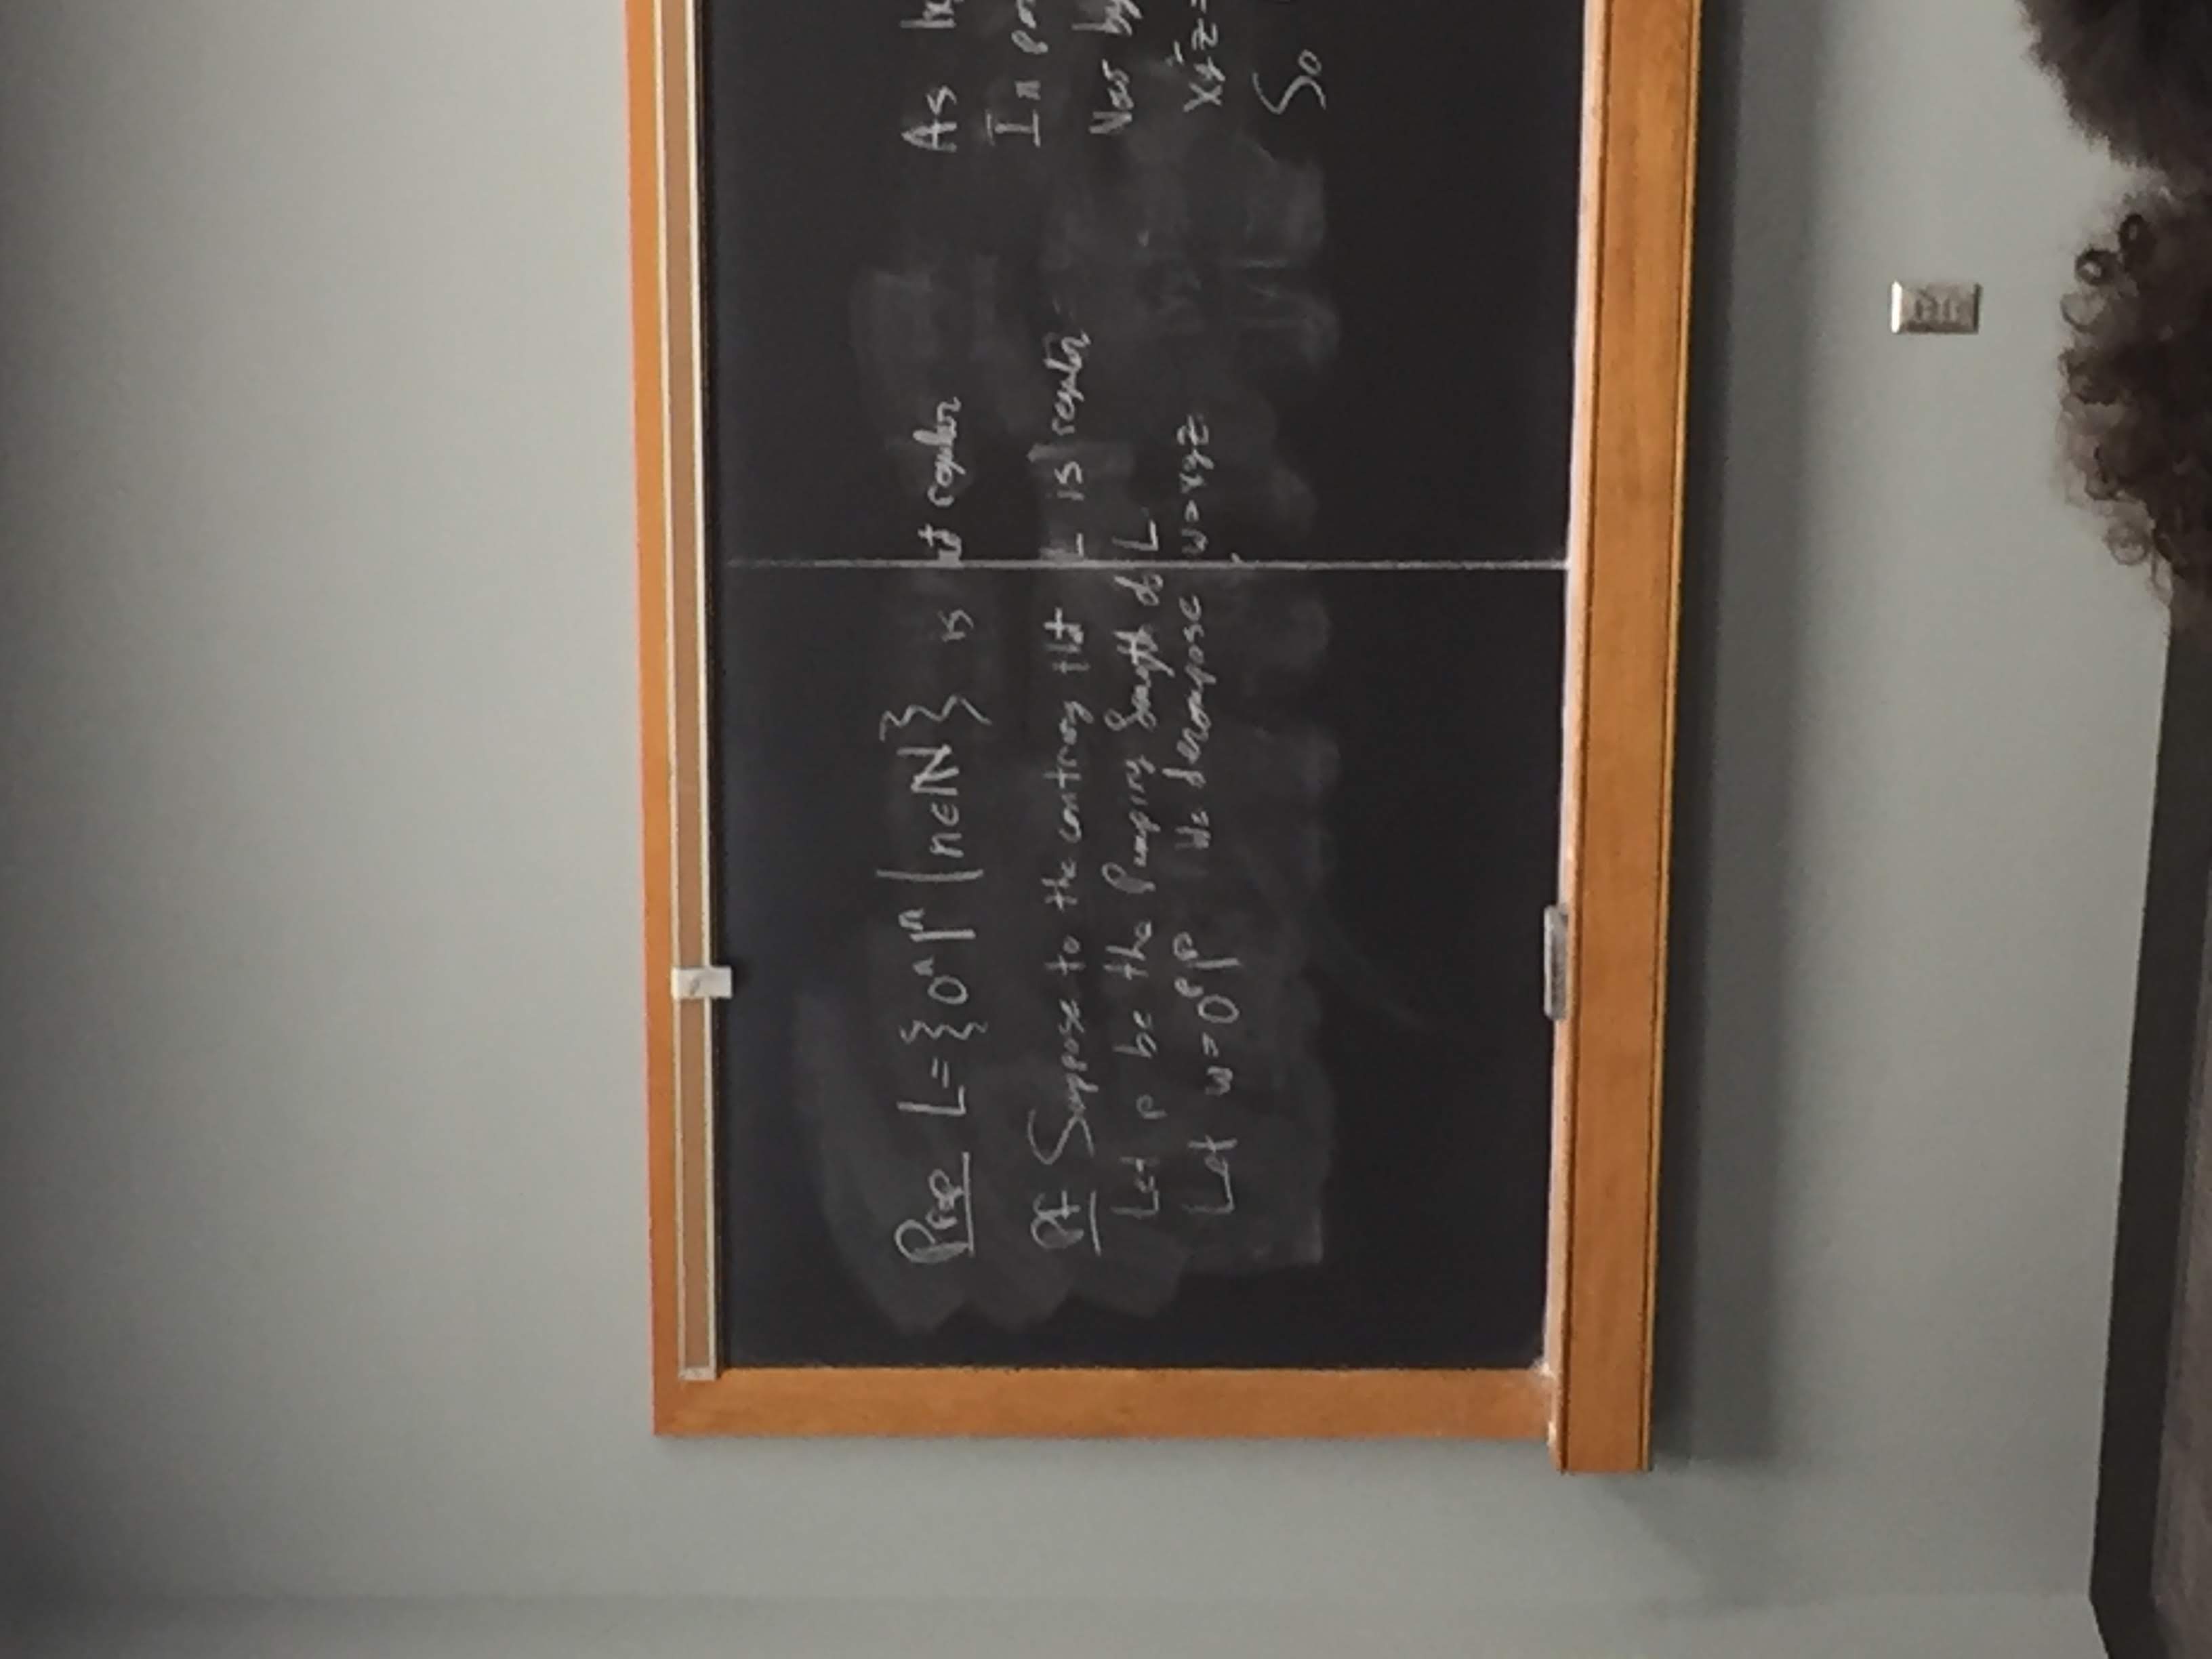 Prop L = {0ⁿ1ⁿ | n∈ℕ} is not regular
Pf Suppose to the contrary that L is regular
Let p be the Pumping length of L
Let w = 0ᵖ1ᵖ We decompose w = xyz
As
In
Now by
xy²z =
So